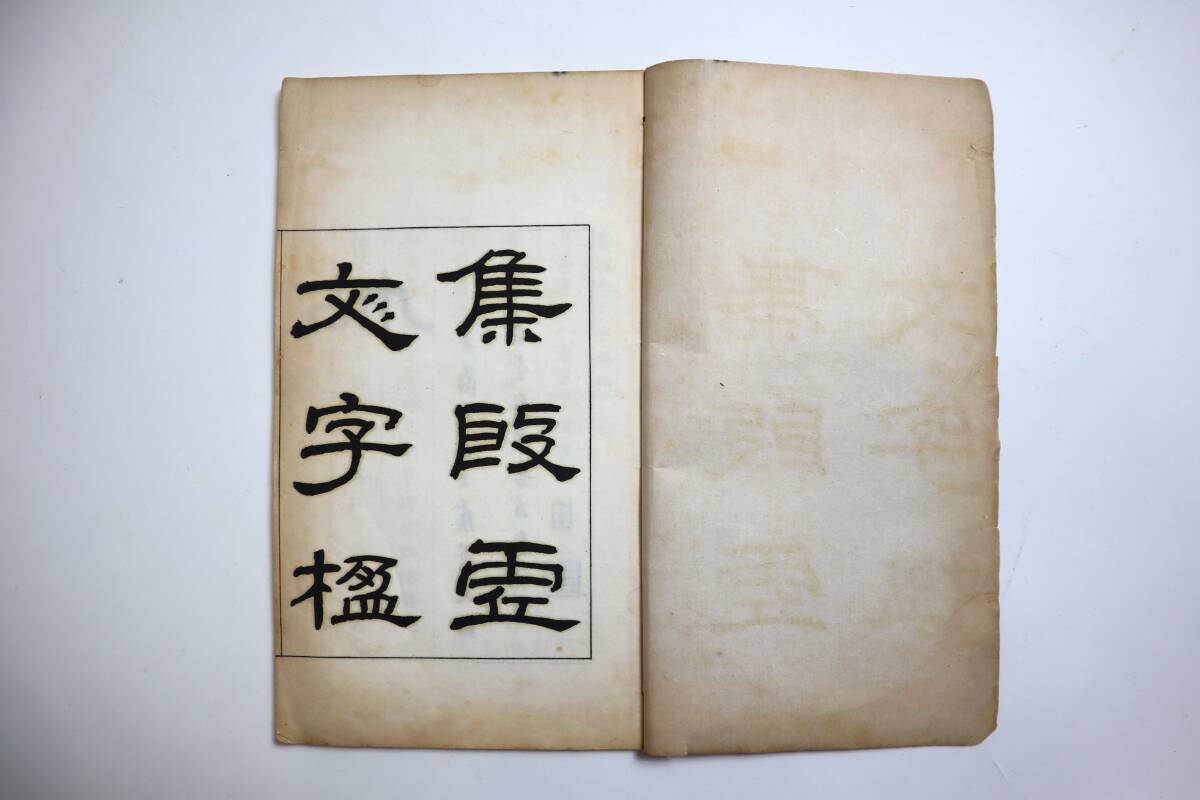 集殷虚
文字楹